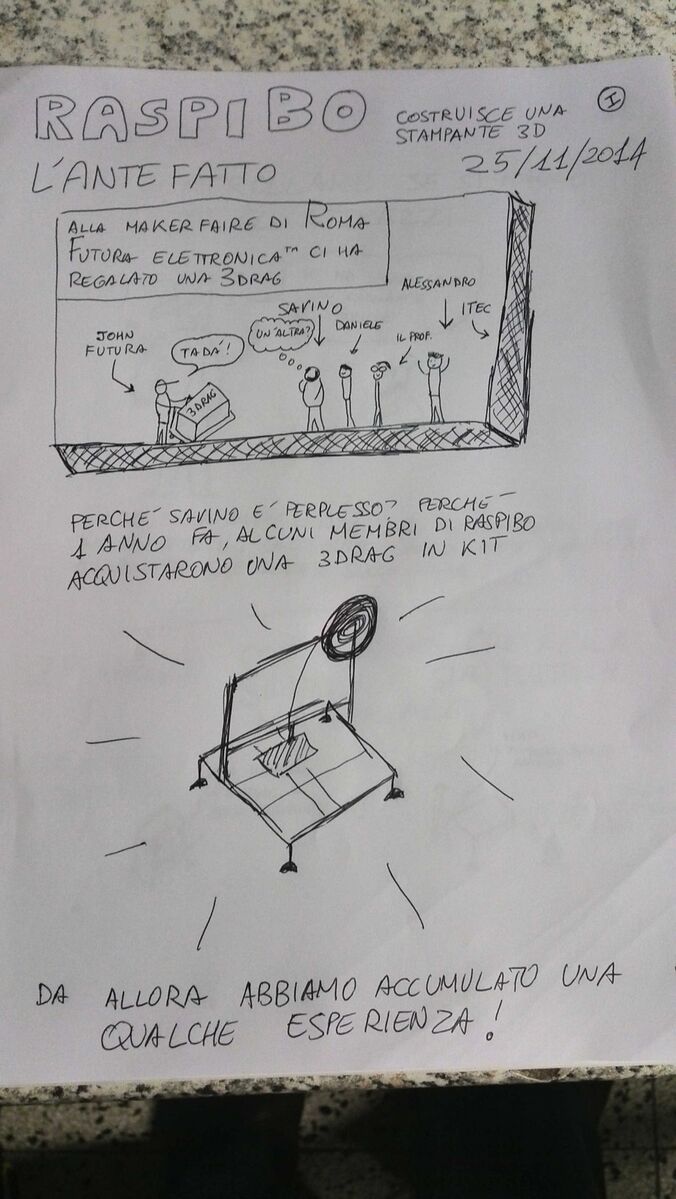 RASPIBO
COSTRUISCE UNA
STAMPANTE 3D
I
25/11/2014
L'ANTEFATTO
ALLA MAKER FAIRE DI ROMA
FUTURA ELETTRONICA™ CI HA
REGALATO UNA 3DRAG
JOHN
FUTURA
TADÀ!
3DRAG
SAVINO
UN'ALTRA?
DANIELE
IL PROF.
ALESSANDRO
ITEC
PERCHÉ SAVINO É PERPLESSO? PERCHÉ
1 ANNO FA, ALCUNI MEMBRI DI RASPIBO
ACQUISTARONO UNA 3DRAG IN KIT
DA ALLORA ABBIAMO ACCUMULATO UNA
QUALCHE ESPERIENZA!